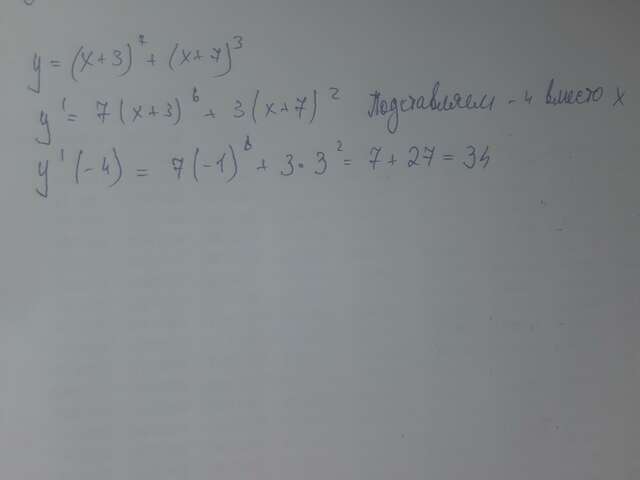 y = (x+3)⁷ + (x+7)³
y' = 7(x+3)⁶ + 3(x+7)² Подставляем -4 вместо x
y'(-4) = 7(-1)⁶ + 3·3² = 7 + 27 = 34